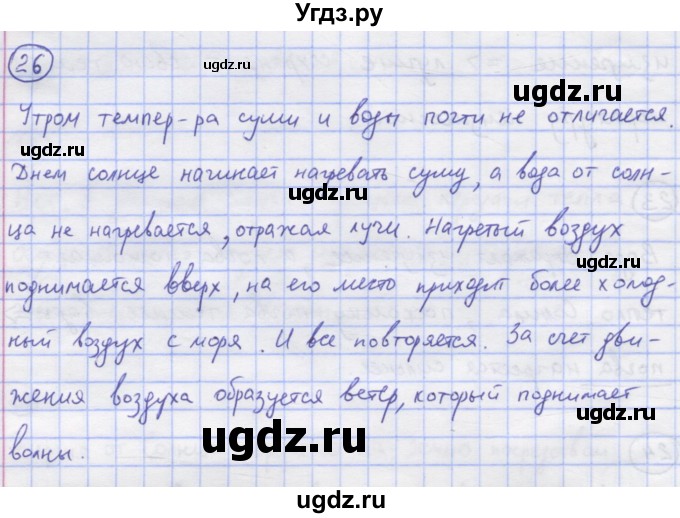 Угдз.ру
26
ugdz.ru ugdz.ru
Утром темпер-ра суши и воды почти не отличается.
ugdz.ru ugdz.ru
Днем солнце начинает нагревать сушу, а вода от солн-
ugdz.ru
ца не нагревается, отражая лучи. Нагретый воздух
ugdz.ru ugdz.ru
поднимается вверх, на его место приходит более холод-
ugdz.ru
ный воздух с моря. И все повторяется. За счет дви-
ugdz.ru
жения воздуха образуется ветер, который поднимает
ugdz.ru ugdz.ru
волны.
ugdz.ru ugdz.ru
ugdz.ru